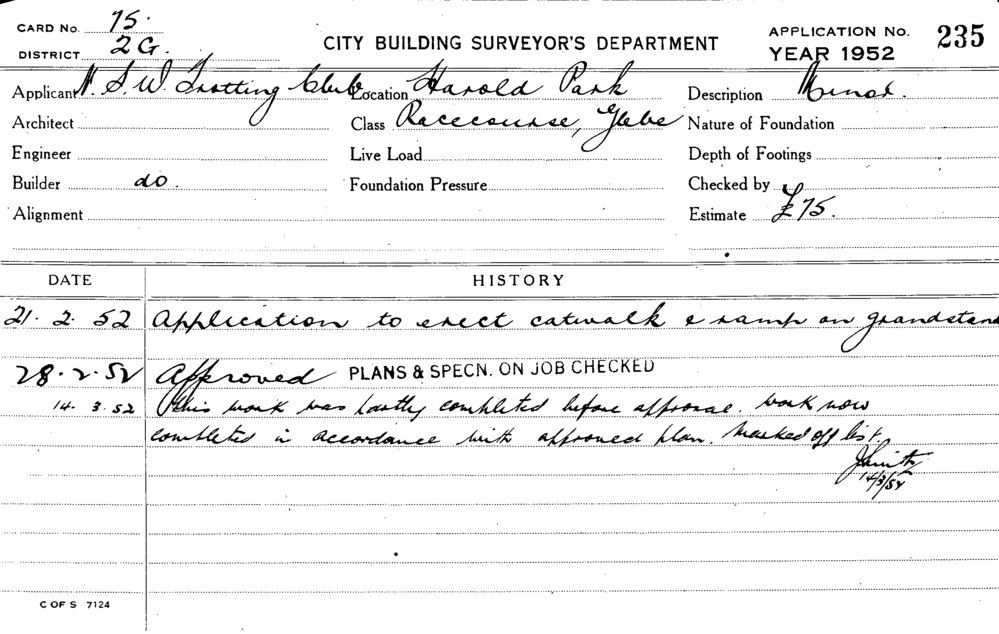 CARD No. 75.
DISTRICT 2G.
CITY BUILDING SURVEYOR'S DEPARTMENT
APPLICATION No. 235
YEAR 1952
Applicant N.S.W. Trotting Club Location Harold Park Description Minor.
Architect Class Racecourse, Glebe Nature of Foundation
Engineer Live Load Depth of Footings
Builder do. Foundation Pressure Checked by
Alignment Estimate £75.
DATE HISTORY
21. 2. 52 Application to erect catwalk & ramp on grandstand
28. 2. 52 Approved PLANS & SPECN. ON JOB CHECKED
14. 3. 52 This work was partly completed before approval. Work now
completed in accordance with approved plan. Marked off list.
14/3/52
C OF S 7124